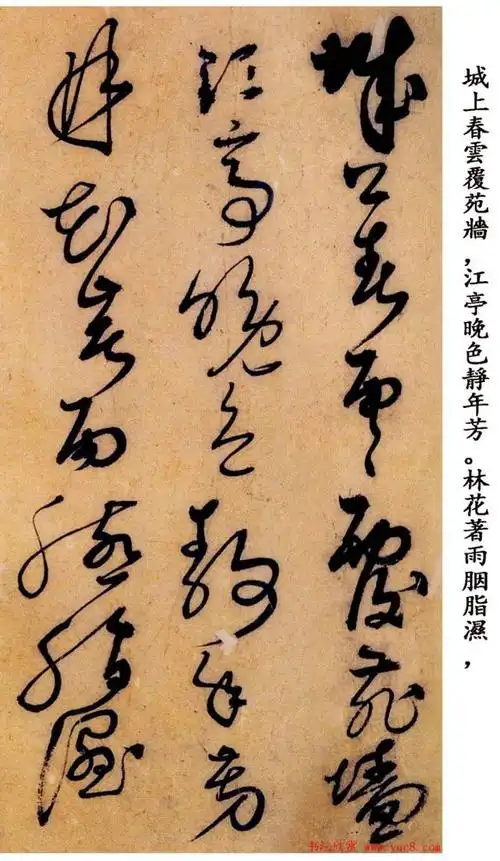 城上春雲覆苑牆
江亭晚色靜年芳
林花著雨胭脂濕
城上春雲覆苑牆，江亭晚色靜年芳。林花著雨胭脂濕，
书坛欣赏 www.yac8.com